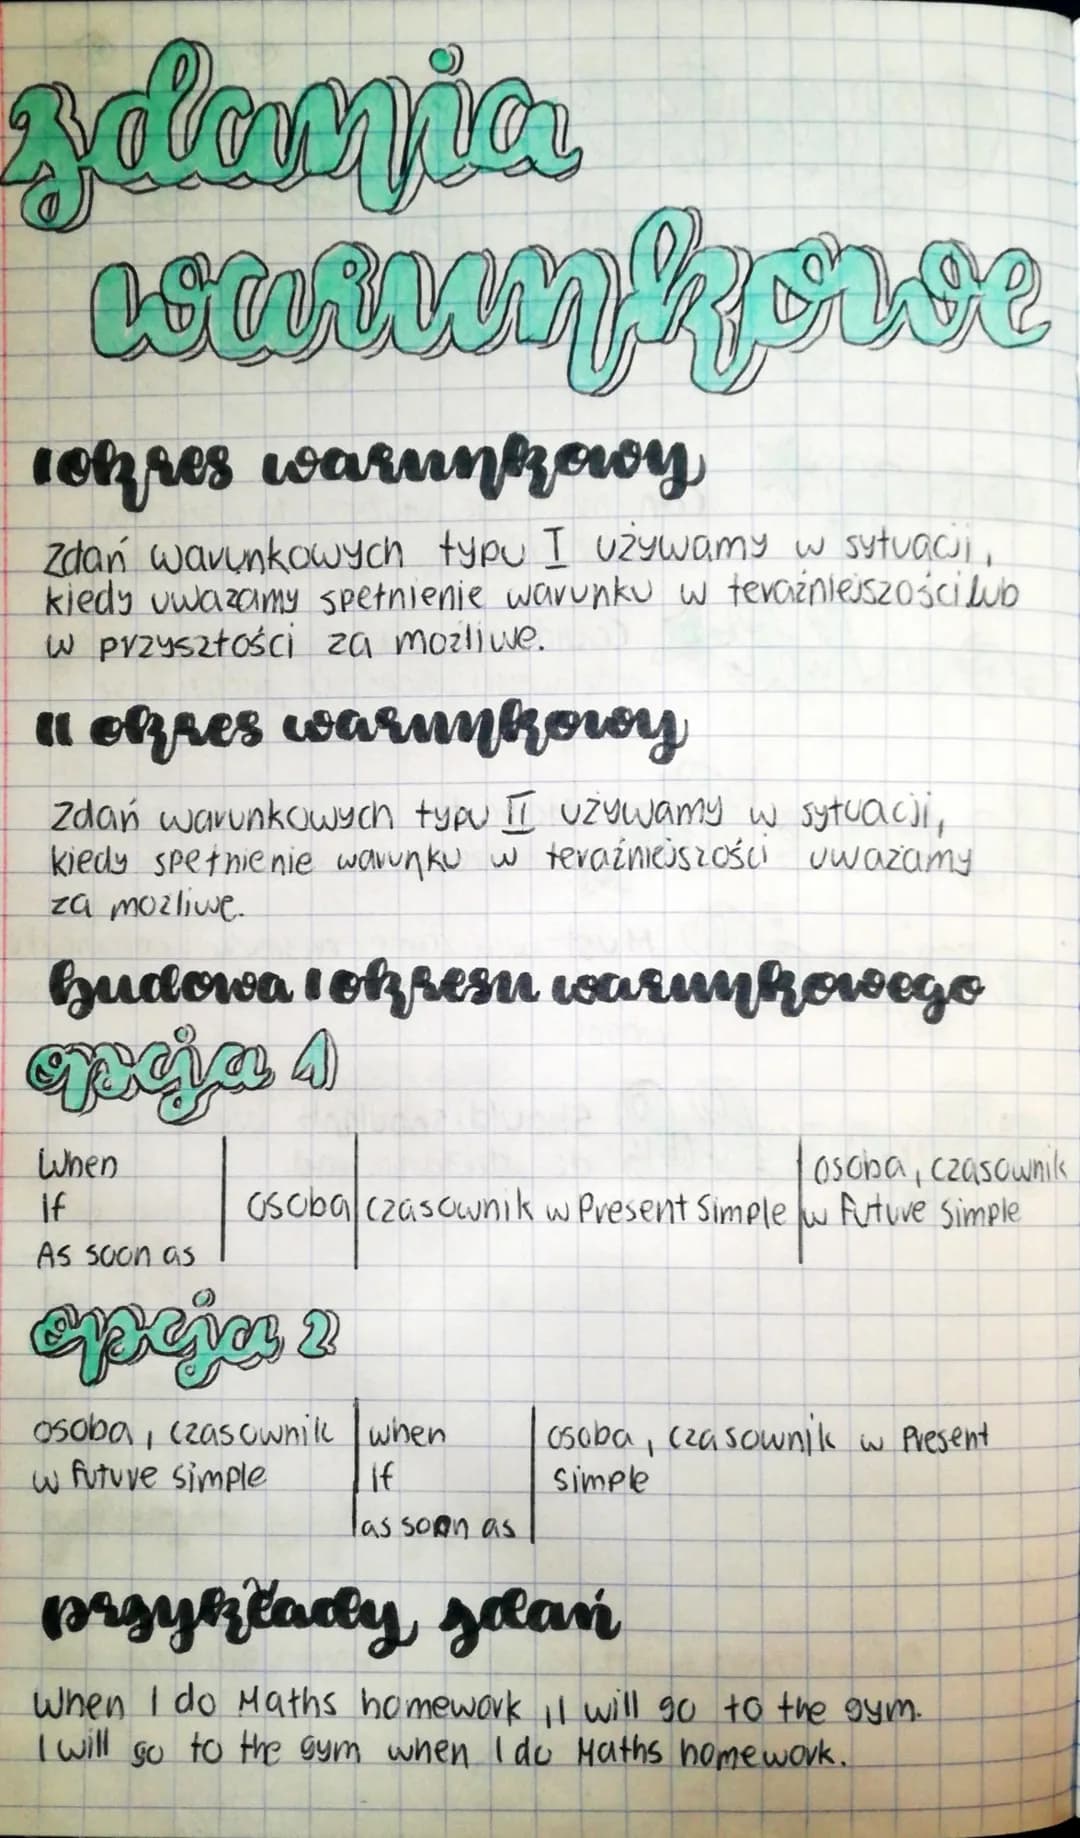 zdania
warunkowe
I okres warunkowy
Zdań warunkowych typu I używamy w sytuacji,
kiedy uważamy spełnienie warunku w teraźniejszości lub
w przyszłości za możliwe.
II okres warunkowy
Zdań warunkowych typu II używamy w sytuacji,
kiedy spełnienie warunku w teraźniejszości uważamy
za możliwe.
budowa I okresu warunkowego
opcja 1
When
If
As soon as
osoba
czasownik w Present Simple
osoba, czasownik
w Future Simple
opcja 2
osoba, czasownik
w Future Simple
when
if
as soon as
osoba, czasownik w Present
Simple
przykłady zdań
When I do Maths homework, I will go to the gym.
I will go to the gym when I do Maths homework.